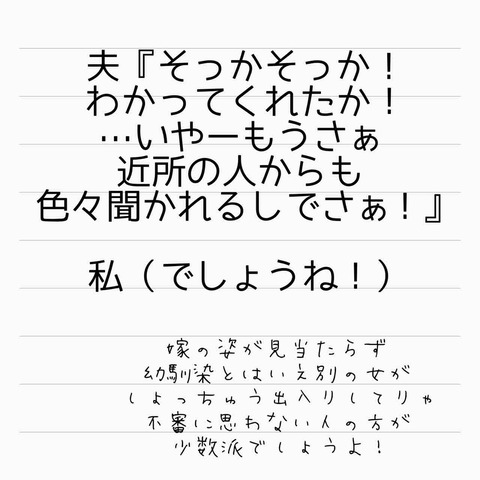 夫『そっかそっか！
わかってくれたか！
…いやーもうさぁ
近所の人からも
色々聞かれるしでさぁ！』
私（でしょうね！）
嫁の姿が見当たらず
幼馴染とはいえ別の女が
しょっちゅう出入りしてりゃ
不審に思わない人の方が
少数派でしょうよ！